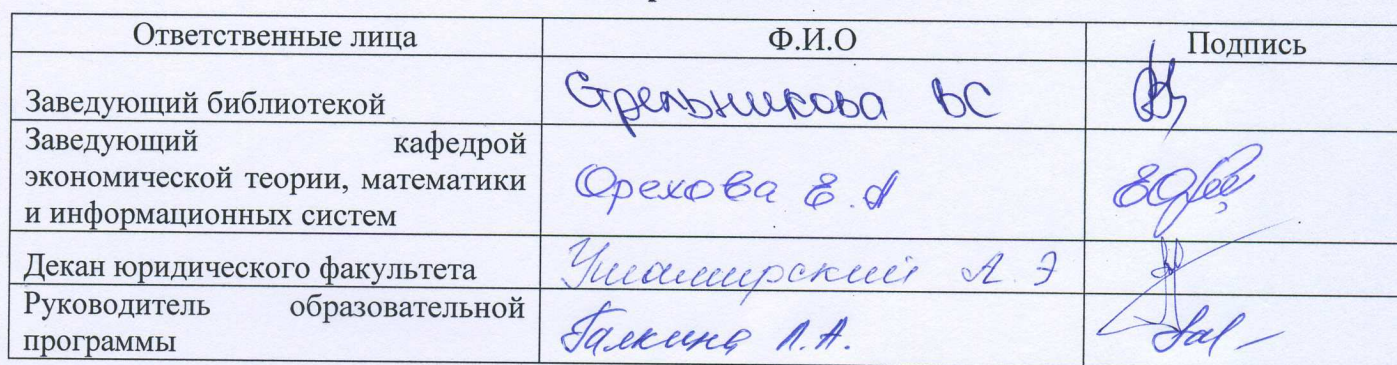 Ответственные лица Ф.И.О Подпись
Заведующий библиотекой Стрельникова ВС
Заведующий кафедрой
экономической теории, математики Орехова Е.А
и информационных систем
Декан юридического факультета Л.Э
Руководитель образовательной
программы Галкина Л.А.